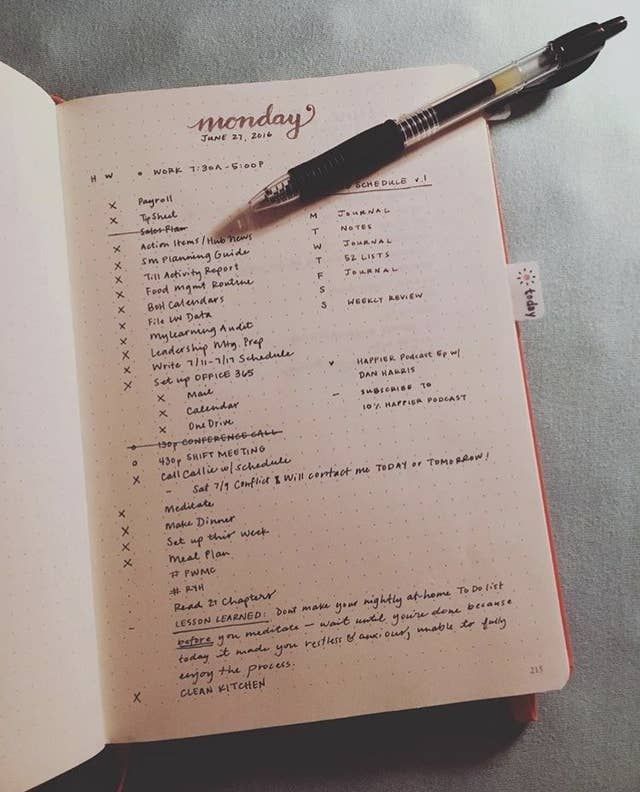 monday
JUNE 27, 2016
H W o WORK 7:30A-5:00P
x Payroll
x TipShed
Sales Plan
x Action Items/Hub News
x Sm Planning Guide
x Till Activity Report
x Food Mgmt Routine
x BoH Calendars
x File LW Data
x Mylearning Audit
x Leadership Mtg. Prep
x Write 7/11-7/17 Schedule
x Set up OFFICE 365
x Mail
x Calendar
x One Drive
o 130p CONFERENCE CALL
o 430p SHIFT MEETING
x Call Callie w/ schedule
- Sat 7/9 Conflict & Will contact me TODAY or TOMORROW!
x Meditate
x Make Dinner
x Set up this Week
x Meal Plan
# FWMC
# RYH
Read 2+ Chapters
- LESSON LEARNED: Dont make your nightly at-home To Do list
before you meditate - wait until you're done because
today it made you restless & anxious, unable to fully
enjoy the process.
x CLEAN KITCHEN
SCHEDULE v.1
M JOURNAL
T NOTES
W JOURNAL
T 52 LISTS
F JOURNAL
S
S WEEKLY REVIEW
v HAPPIER PODCAST Ep w/
DAN HARRIS
- SUBSCRIBE TO
10% HAPPIER PODCAST
today
215